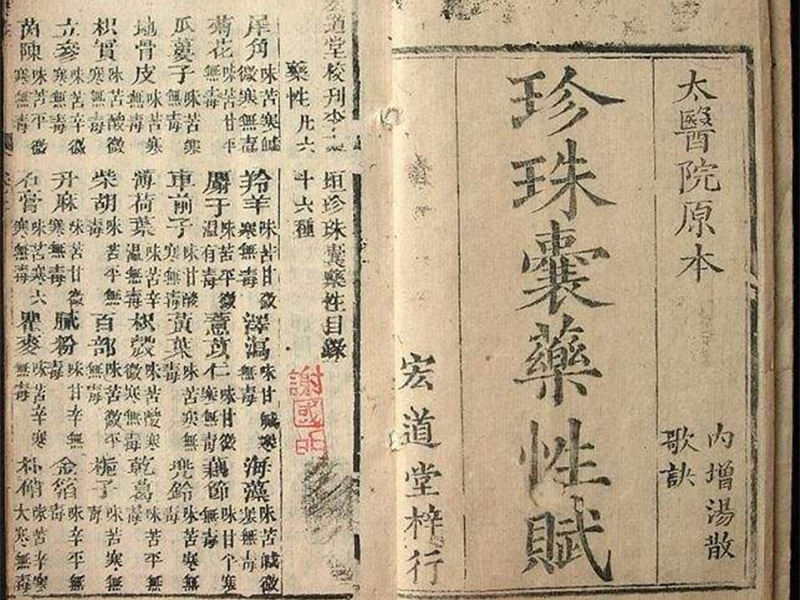 太醫院原本
珍珠囊藥性賦
內增湯散
歌訣
宏道堂梓行
道堂校刊李垣珍珠囊藥性目錄
藥性凡六十六種
犀角 味苦寒鹹微寒無毒 羚羊 味苦甘微寒無毒 澤瀉 味甘鹹寒無毒 海藻 味苦鹹微寒無毒
菊花 味苦甘平無毒 味苦平微溫有毒 薏苡仁 味甘微寒無毒 藕節 味甘寒無毒
瓜蔞子 味苦寒無毒 車前子 味甘酸寒無毒 黃葉 味苦寒無毒 兜鈴 味苦寒無毒
地骨皮 味苦寒無毒 薄荷葉 味苦辛溫無毒 枳殼 味苦酸寒微寒無毒 乾葛 味苦平無毒
枳實 味苦酸微寒無毒 柴胡 味苦平無毒 百部 味苦微平無毒 梔子 味苦寒無毒
玄參 味苦微寒無毒 升麻 味苦甘微寒無毒 膩粉 味甘辛無毒 金箔 味辛平無毒
茵陳 味苦平微寒無毒 石膏 味苦寒六寒無毒 瞿麥 味苦辛寒無毒 朴硝 味苦辛寒大寒無毒
謝國